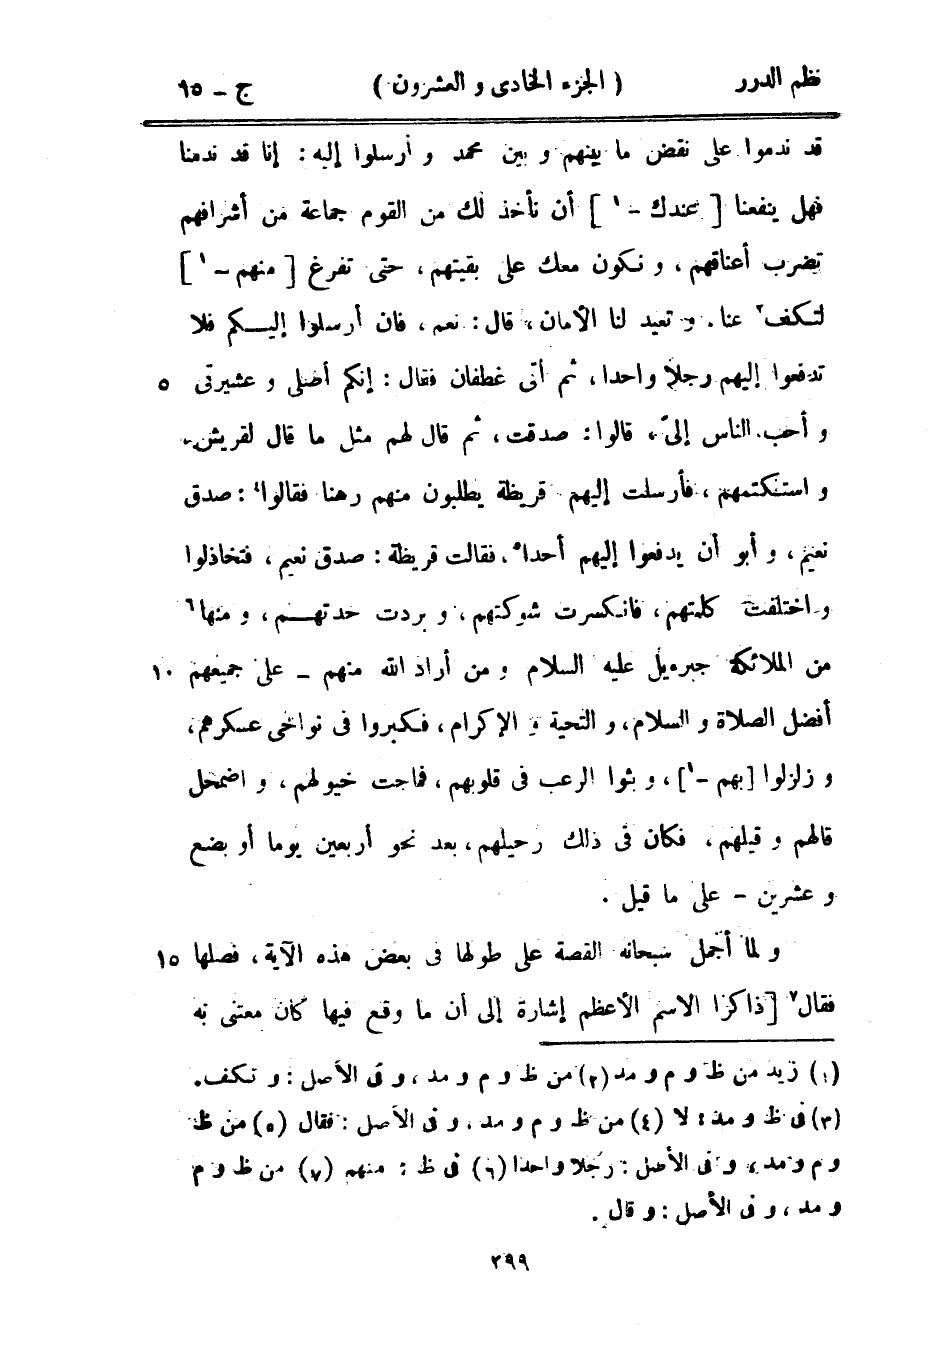 نظم الدرر ( الجزء الحادى و العشرون ) ج - ١٥
قد ندموا على نقض ما بينهم و بين محمد و أرسلوا إليه : إنا قد ندمنا
فهل ينفعنا [ عندك - ١ ] أن نأخذ لك من القوم جماعة من أشرافهم
تضرب أعناقهم ، و نكون معك على بقيتهم ، حتى تفرغ [ منهم - ١ ]
لتكف ٢ عنا . و تعيد لنا الأمان ، قال : نعم ، فان أرسلوا إليكم فلا
تدفعوا إليهم رجلا واحدا ، ثم أتى غطفان فقال : إنكم أصلى و عشيرتى ٥
و أحب الناس إلىّ ، قالوا : صدقت ، ثم قال لهم مثل ما قال لقريش
و استكتمهم ، فأرسلت إليهم قريظة يطلبون منهم رهنا فقالوا ٤ : صدق
نعيم ، و أبو أن يدفعوا إليهم أحدا ٥ ، فقالت قريظة : صدق نعيم ، فتخاذلوا
و اختلفت كلمتهم ، فانكسرت شوكتهم ، و بردت حدتهم ، و منها ٦
من الملائكة جبرءيل عليه السلام و من أراد الله منهم - على جميعهم ١٠
أفضل الصلاة و السلام ، و التحية و الإكرام ، فكبروا فى نواحى عسكرهم ،
و زلزلوا [ بهم - ١ ] ، و بثوا الرعب فى قلوبهم ، فماجت خيولهم ، و اضمحل
قالهم و قيلهم ، فكان فى ذلك رحيلهم ، بعد نحو أربعين يوما أو بضع
و عشرين - على ما قيل .
و لما أجمل سبحانه القصة على طولها فى بعض هذه الآية ، فصلها ١٥
فقال ٧ [ ذاكرا الاسم الأعظم إشارة إلى أن ما وقع فيها كان معتنى به
(١) زيد من ظ و م و مد (٢) من ظ و م و مد ، و فى الأصل : و تكف .
(٣) فى ظ و مد : لا (٤) من ظ و م و مد ، و فى الأصل : فقال (٥) من ظ
و م و مد ، و فى الأصل : رجلا واحدا (٦) فى ظ : منهم (٧) من ظ و م
و مد ، و فى الأصل : و قال .
٢٩٩